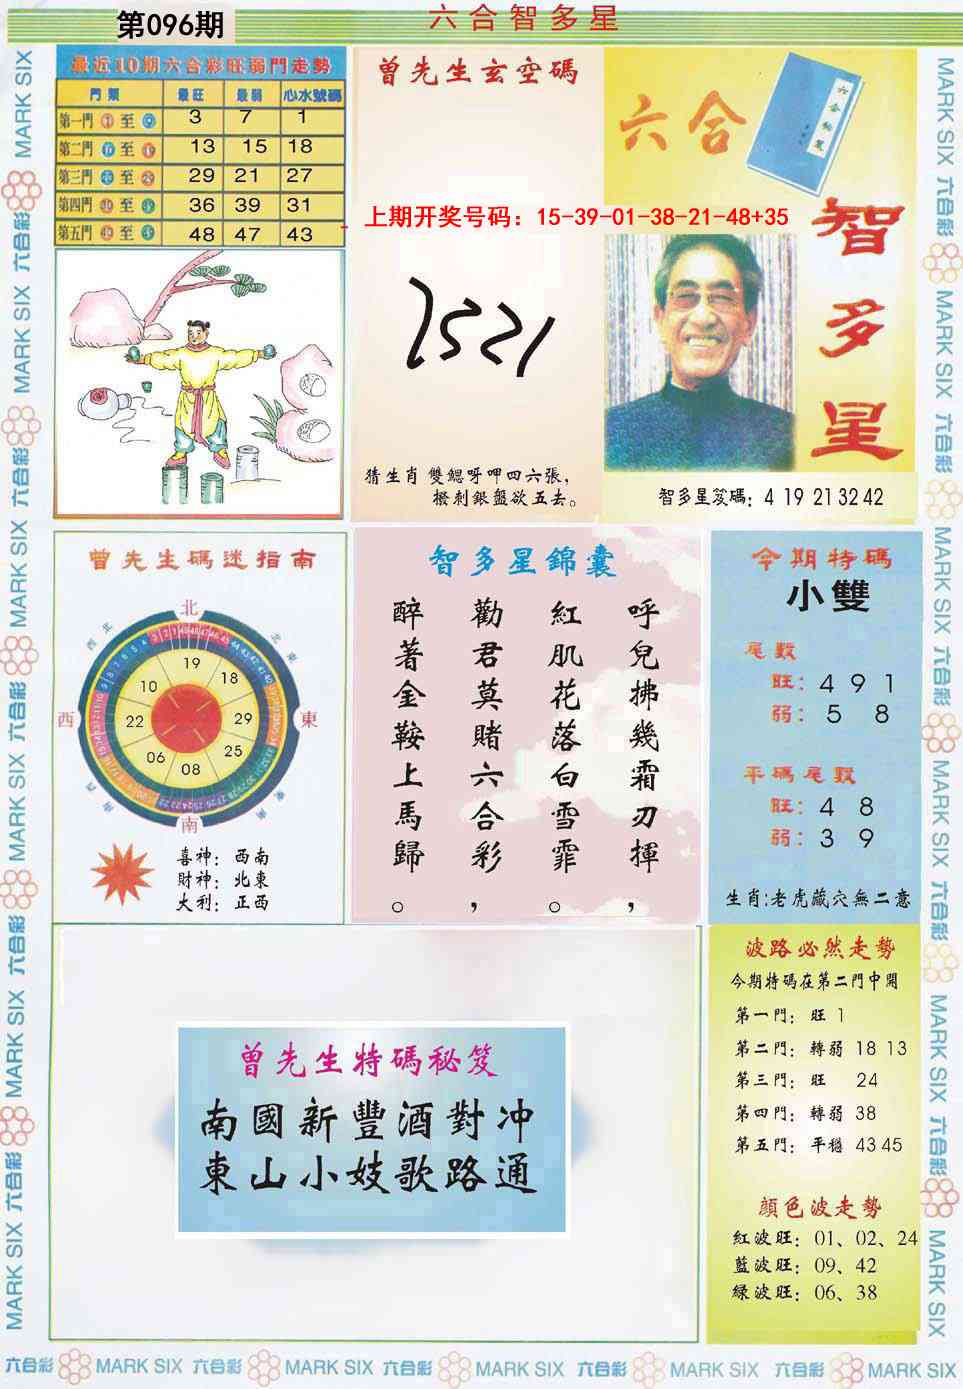 第096期
六合智多星
最近10期六合彩旺弱門走勢
門類 最旺 最弱 心水號碼
第一門 至 3 7 1
第二門 至 13 15 18
第三門 至 29 21 27
第四門 至 36 39 31
第五門 至 48 47 43
曾先生玄空碼
1521
猜生肖 雙鰓呀呷四六張,
撥刺銀盤欲五去。
六合
智多星
上期开奖号码：15-39-01-38-21-48+35
智多星笈碼: 4 19 21 32 42
曾先生碼迷指南
北
西北
北東
西
東
西南
東南
南
19
18
29
25
08
06
22
10
喜神: 西南
財神: 北東
大利: 正西
智多星錦囊
呼兒拂幾霜刃揮，
紅肌花落白雪霏。
勸君莫賭六合彩，
醉著金鞍上馬歸。
今期特碼
小雙
尾數
旺: 4 9 1
弱: 5 8
平碼尾數
旺: 4 8
弱: 3 9
生肖:老虎藏穴無二意
曾先生特碼秘笈
南國新豐酒對冲
東山小妓歌路通
波路必然走勢
今期特碼在第二門中開
第一門: 旺 1
第二門: 轉弱 18 13
第三門: 旺 24
第四門: 轉弱 38
第五門: 平穩 43 45
顏色波走勢
紅波旺: 01、02、24
藍波旺: 09、42
綠波旺: 06、38
六合彩 MARK SIX 六合彩 MARK SIX 六合彩 MARK SIX 六合彩 MARK SIX 六合彩 MARK SIX